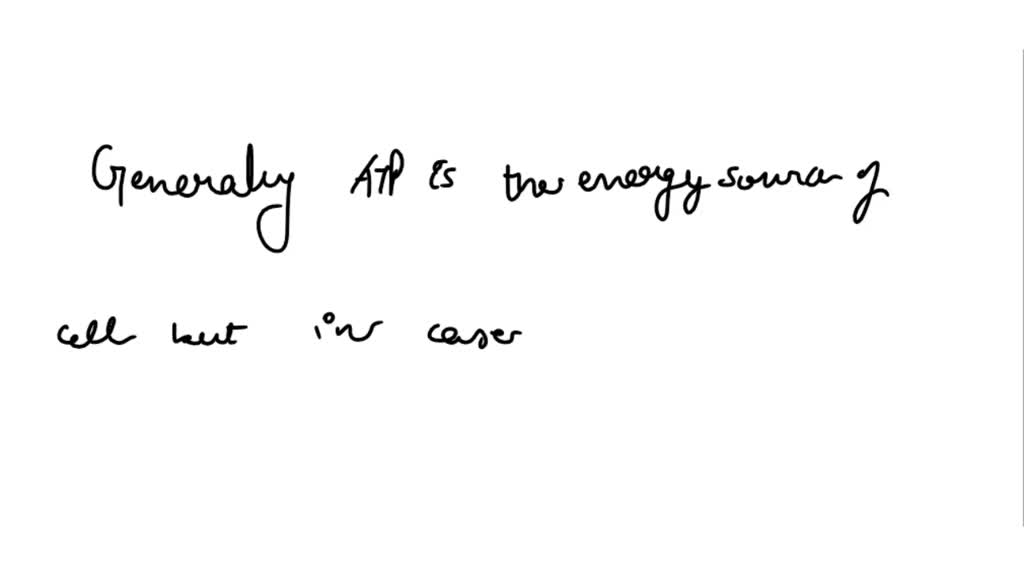 Generally ATP is the energy source of
cell but in case